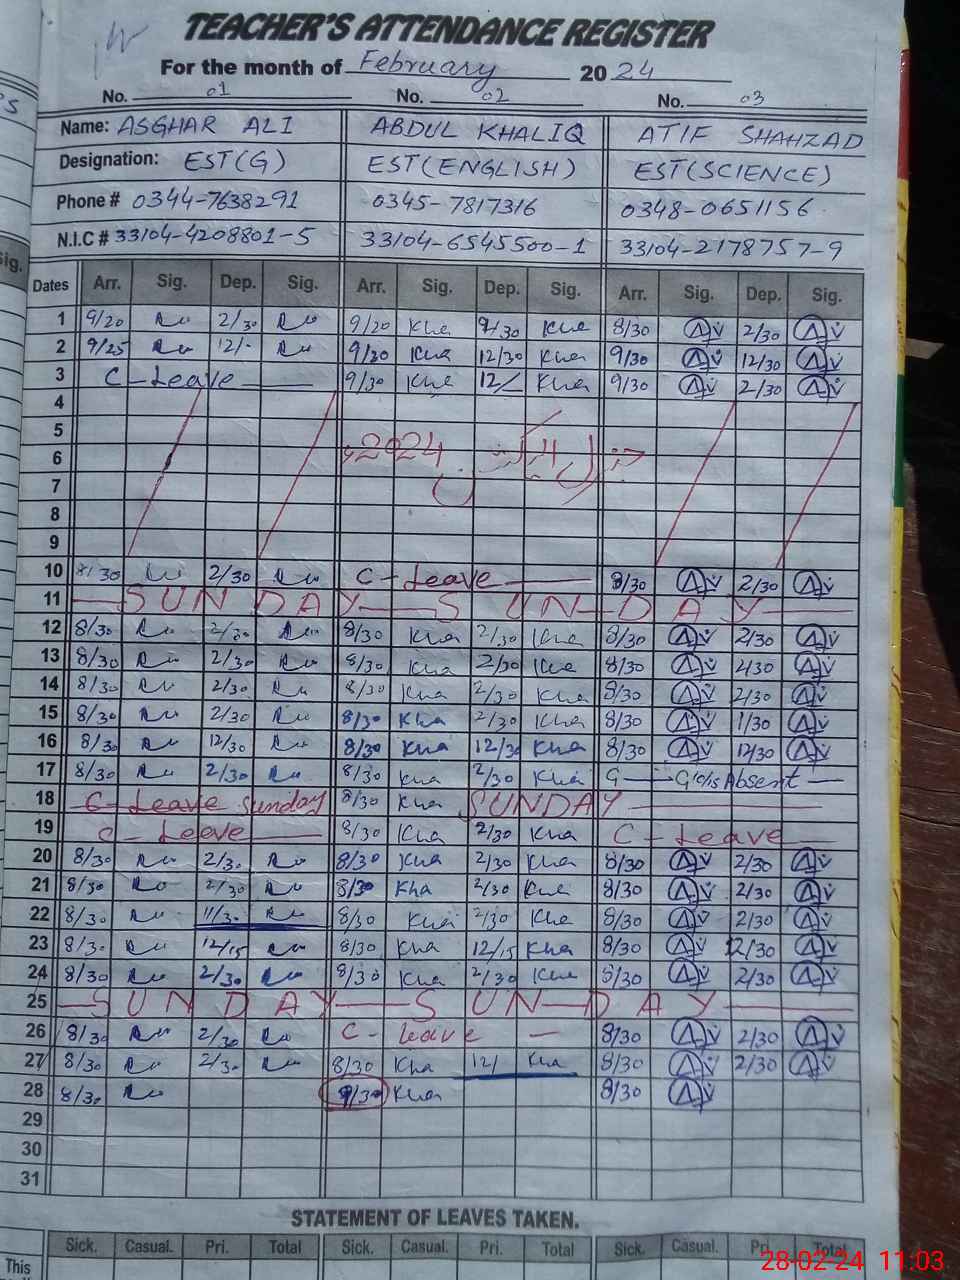 TEACHER'S ATTENDANCE REGISTER
For the month of February 2024
No. 01 No. 02 No. 03
Name: ASGHAR ALI ABDUL KHALIQ ATIF SHAHZAD
Designation: EST(G) EST(ENGLISH) EST(SCIENCE)
Phone # 0344-7638291 0345-7817316 0348-0651156
N.I.C # 33104-4208801-5 33104-6545500-1 33104-2178757-9
Dates Arr. Sig. Dep. Sig. Arr. Sig. Dep. Sig. Arr. Sig. Dep. Sig.
1 9/20 2/30 9/20 Kha 9/30 Kha 8/30 2/30
2 9/25 12/- 9/20 Kha 12/30 Kha 9/30 12/30
3 C-Leave 9/30 Kha 12/ Kha 9/30 2/30
4
5
6 2024
7
8
9
10 8/30 2/30 C-Leave 8/30 2/30
11 SUNDAY SUNDAY
12 8/30 2/30 8/30 Kha 2/30 Kha 8/30 2/30
13 8/30 2/30 8/30 Kha 2/30 Kha 8/30 2/30
14 8/30 2/30 8/30 Kha 2/30 Kha 8/30 2/30
15 8/30 2/30 8/30 Kha 2/30 Kha 8/30 1/30
16 8/30 12/30 8/30 Kha 12/30 Kha 8/30 12/30
17 8/30 2/30 8/30 Kha 2/30 Kha Absent
18 C-Leave Sunday 8/30 Kha SUNDAY
19 C-Leave 8/30 Kha 2/30 Kha C-Leave
20 8/30 2/30 8/30 Kha 2/30 Kha 8/30 2/30
21 8/30 2/30 8/30 Kha 2/30 Kha 8/30 2/30
22 8/30 11/30 8/30 Kha 2/30 Kha 8/30 2/30
23 8/30 12/15 8/30 Kha 12/15 Kha 8/30 12/30
24 8/30 2/30 8/30 Kha 2/30 Kha 8/30 2/30
25 SUNDAY SUNDAY
26 8/30 2/30 C-Leave 8/30 2/30
27 8/30 2/30 8/30 Kha 12/ Kha 8/30 2/30
28 8/30 9/30 Kha 8/30
29
30
31
STATEMENT OF LEAVES TAKEN.
Sick. Casual. Pri. Total Sick. Casual. Pri. Total Sick. Casual. Pri. Total
This
28-02-24 11:03